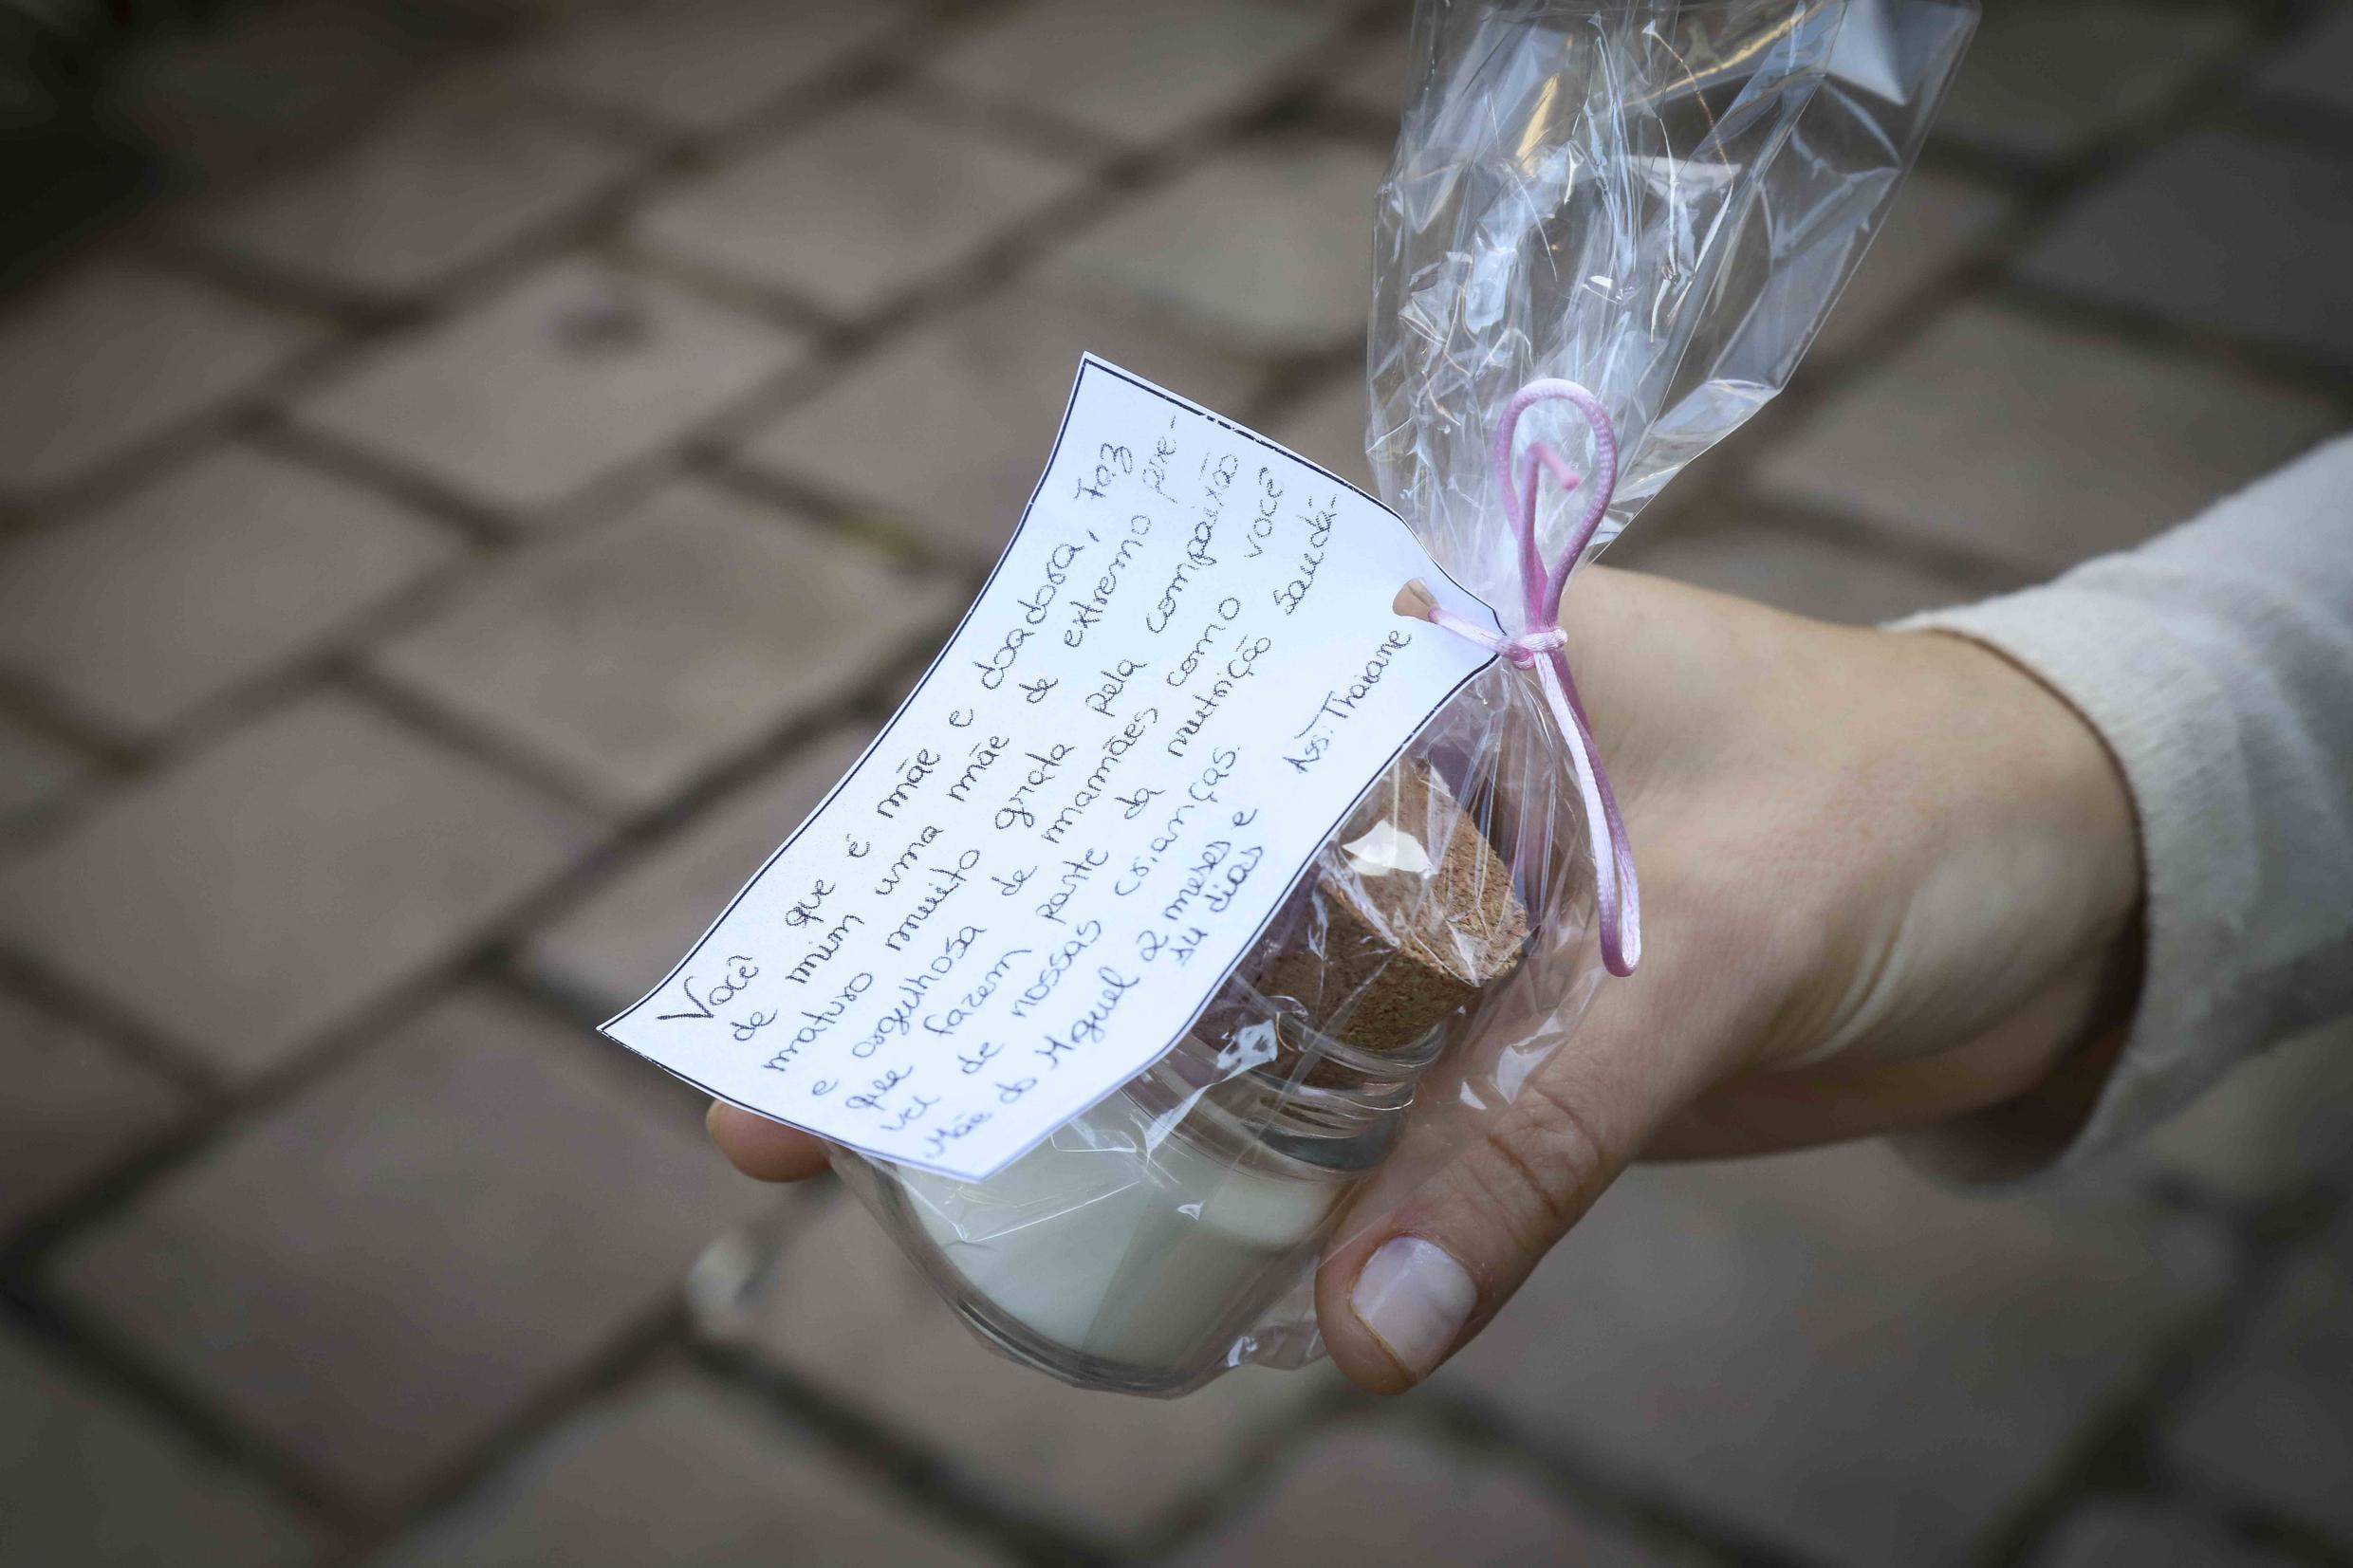 Você que é mãe e doadora, faz
de mim uma mãe de extremo pre-
maturo muito grata pela compaixão
e orgulhosa de mamães como você
que fazem parte da nutrição saudá-
vel de nossas crianças.
Ass: Thaiane
Mãe do Miguel 2 meses e
14 dias